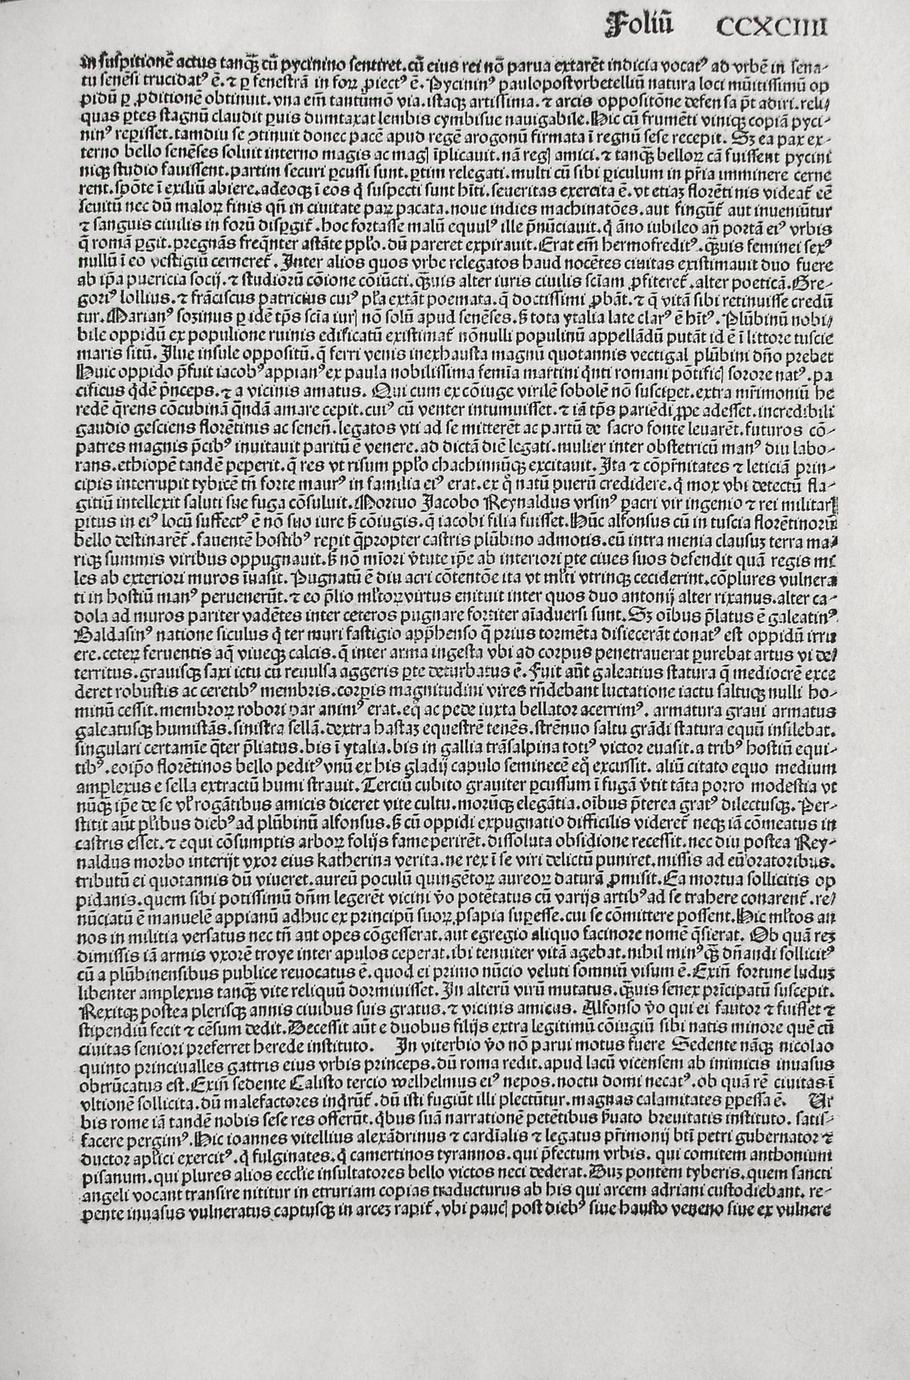 Foliũ CCXCIIII
in suspitionẽ actus tanq̃ʒ cũ pycinino sentiret. cũ eius rei nõ parua extarẽt indicia vocatꝰ ad vrbẽ in sena-
tu senẽsi trucidatꝰ ẽ. ⁊ ꝑ fenestrã in foꝝ ꝓiectꝰ ẽ. Pycininꝰ paulopostvrbetelliũ natura loci mũitissimũ op
pidũ ꝑ ꝓditionẽ obtinuit. vna em̃ tantũmõ via. istaqʒ artissima. ⁊ arcis oppositõne defensa põt adiri. reli-
quas ꝑtes stagnũ claudit ꝑuis dumtaxat lembis cymbisue nauigabile. Hic cũ frumẽti viniqʒ copiã pyci-
ninꝰ reꝑisset. tamdiu se ꝯtinuit donec pacẽ apud regẽ arogonũ firmata ĩ regnũ sese recepit. Sʒ ea pax ex-
terno bello senẽses soluit interno magis ac magꝭ ĩplicauit. nã regꝭ amici. ⁊ tanq̃ʒ belloꝝ cã fuissent pycini
niqʒ studio fauissent. partim securi ꝑcussi sunt. ꝑtim relegati. multi cũ sibi ꝑiculum in pr̃ia imminere cerne
rent. spõte ĩ exiliũ abiere. adeoqʒ ĩ eos q̇ suspecti sunt hĩti. seueritas exercita ẽ. vt etiaʒ florẽti nis videat᷑ eẽ
seuitũ nec dũ maloꝝ finis qñ in ciuitate paꝝ pacata. noue indies machinatões. aut fingũt᷑ aut inueniũtur
⁊ sanguis ciuilis in forũ disꝑgit᷑. hoc fortasse malũ equulꝰ ille p̃nũciauit. q̇ ãno iubileo añ portã eiꝰ vrbis
q̃ romã ꝑgit. pregnãs freq̃nter astãte pplo. dũ pareret expirauit. Erat em̃ hermofreditꝰ. q̃ʒuis feminei sexꝰ
nullũ ĩ eo vestigiũ cerneret᷑. Inter alios quos vrbe relegatos haud nocẽtes ciuitas existimauit duo fuere
ab ip̃a puericia socij. ⁊ studiorũ cõione cõiũcti. q̃ʒuis alter iuris ciuilis sciam ꝓfiteret᷑. alter poeticã. Gre-
goriꝰ lollius. ⁊ frãciscus patricius cuiꝰ pl̃a extãt poemata. q̃ doctissimi ꝓbãt. ⁊ q̃ vitã sibi retinuisse credũ
tur. Marianꝰ sozinus ꝑ idẽ tp̃s sciã iurꝭ nõ solũ apud senẽses. sʒ tota ytalia late clarꝰ ẽ hĩtꝰ. Plũbinũ nobi-
bile oppidũ ex populione ruinis edificatũ existimat᷑ nõnulli populinũ appellãdũ putãt id ẽ ĩ littore tuscie
maris sitũ. Ilue insule oppositũ. q̃ ferri venis inexhausta magnũ quotannis vectigal plũbini dño prebet
Huic oppido p̃fuit iacobꝰappianꝰex paula nobilissima femĩa martini qͥnti romani põtificꝭ sorore natꝰ. pa
cificus qͥdẽ p̃nceps. ⁊ a vicinis amatus. Qui cum ex cõiuge virilẽ sobolẽ nõ susciꝑet. extra mr̃imoniũ he
redẽ q̃rens cõcubinã q̃ndã amare cepit. cuiꝰ cũ venter intumuisset. ⁊ iã tp̃s pariẽdi ꝓpe adesset. incredibili
gaudio gesciens florẽtinis ac senẽñ. legatos vti ad se mitterẽt ac partũ de sacro fonte leuarẽt. futuros cõ-
patres magnis p̃cibꝰ inuitauit paritũ ẽ venere. ad dictã diẽ legati. mulier inter obstetricũ manꝰ diu labo-
rans. ethiopẽ tandẽ peperit. q̃ res vt risum pplo chachinnũqʒ excitauit. Ita ⁊ cõp̃nitates ⁊ leticiã prin-
cipis interrupit tybicẽ tñ forte maurꝰ in familia eiꝰ erat. ex q̇ natũ puerũ credidere. q̇ mox vbi detectũ fla-
gitiũ intellexit saluti sue fuga cõsuluit. Mortuo Jacobo Reynaldus vrsinꝰ pacri vir ingenio ⁊ rei militarꝭ
ꝑitus in eiꝰ locũ suffectꝰ ẽ nõ suo iure sʒ cõiugis. q̃ iacobi filia fuisset. Hũc alfonsus cũ in tuscia florẽtinorũ
bello destinarẽt᷑. fauentẽ hostibꝰ reꝑit q̃propter castris plũbino admotis. cũ intra menia clausuʒ terra ma-
riqʒ summis viribus oppugnauit. sʒ nõ mĩori ṽtute ip̃e ab interiori ꝑte ciues suos defendit quã regis mi
les ab exteriori muros ĩuasit. Pugnatũ ẽ diu acri cõtentõe ita vt ml̃ti vtrinqʒ ceciderint. cõplures vulnera
ti in hostiũ manꝰ peruenerũt. ⁊ eo p̃lio ml̃toꝝvirtus enituit inter quos duo antonij alter rixanus. alter ca-
dola ad muros pariter vadẽtes inter ceteros pugnare fortiter aĩaduersi sunt. Sʒ oĩbus p̃latus ẽ galeatinꝰ
Baldasinꝰ natione siculus q̇ ter muri fastigio app̃henso q̃ prius tormẽta disiecerãt conatꝰ est oppidũ irru
ere. ceteꝝ feruentis aq̃ viueqʒ calcis. q̃ inter arma ingesta vbi ad corpus penetrauerat ꝑurebat artus vi de-
territus. grauisqʒ saxi ictu cũ reuulsa aggeris ꝑte deturbatus ẽ. Fuit aũt galeatius statura q̃ mediocrẽ exce
deret robustis ac ceretibꝰ membris. corꝑis magnitudini vires rñdebant luctatione iactu saltuqʒ nulli ho-
minũ cessit. membroꝝ robori par animꝰ erat. eq̃ ac pede iuxta bellator acerrimꝰ. armatura graui armatus
galeatusqʒ humistãs. sinistra sellã. dextra hastaʒ equestrẽ tenẽs. strẽnuo saltu grãdi statura equũ insilebat.
singulari certamĩe q̃ter p̃liatus. bis ĩ ytalia. bis in gallia trãsalpina totiꝰ victor euasit. a tribꝰ hostiũ equi-
tibꝰ. eoip̃o florẽtinos bello peditꝰvnũ ex his gladij capulo seminecẽ eq̇ excussit. aliũ citato equo medium
amplexus e sella extractũ humi strauit. Terciũ cubito grauiter ꝑcussum ĩ fugã ṽtit tãta porro modestia vt
nũq̃ʒ ip̃e de se vl̃ rogãtibus amicis diceret vite cultu. morũqʒ elegãtia. oĩbus p̃terea gratꝰ dilectusqʒ. Per-
stitit aũt pl̃ibus diebꝰ ad plũbinũ alfonsus. sʒ cũ oppidi expugnatio difficilis videret᷑ neqʒ iã cõmeatus in
castris esset. ⁊ equi cõsumptis arboꝝ folijs fame perirẽt. dissoluta obsidione recessit. nec diu postea Rey-
naldus morbo interijt vxor eius katherina verita. ne rex ĩ se viri delictũ puniret. missis ad eũ oratoribus.
tributũ ei quotannis dũ viueret. aureũ poculũ quingẽtoꝝ aureoꝝ daturã ꝓmisit. Ea mortua sollicitis op
pidanis. quem sibi potissimũ dñm legerẽt vicini ṽo potẽtatus cũ varijs artibꝰad se trahere conarent᷑. re-
nũciatũ ẽ manuelẽ appianũ adhuc ex principũ suoꝝ ꝓsapia suꝑesse. cui se cõmittere possent. Hic ml̃tos an
nos in militia versatus nec tñ aut opes cõgesserat. aut egregio aliquo facinore nomẽ q̃sierat. Ob quã reʒ
dimissis iã armis vxorẽ troye inter apulos ceperat. ibi tenuiter vitã agebat. nihil minꝰq̃ʒ dñandi sollicitꝰ
cũ a plũbinensibus publice reuocatus ẽ. quod ei primo nũcio veluti somniũ visum ẽ. Exiñ fortune luduʒ
libenter amplexus tanq̃ʒ vite reliquũ dormiuisset. In alterũ virũ mutatus. q̃ʒuis senex prĩcipatũ suscepit.
Rexitqʒ postea plerisqʒ annis ciuibus suis gratus. ⁊ vicinis amicus. Alfonso ṽo qui ei fautor ⁊ fuisset ⁊
stipendiũ fecit ⁊ cẽsum dedit. Decessit aũt e duobus filijs extra legitimũ cõiugiũ sibi natis minore quẽ cũ
ciuitas seniori preferret herede instituto. In viterbio ṽo nõ parui motus fuere Sedente nãqʒ nicolao
quinto princiualles gattris eius vrbis princeps. dũ roma redit. apud lacũ vicensem ab inimicis inuasus
obtrũcatus est. Exiñ sedente Calisto tercio welhelmus eiꝰ nepos. noctu domi necatꝰ. ob quã rẽ ciuitas ĩ
vltionẽ sollicita. dũ malefactores inqͥrũt᷑. dũ isti fugiũt illi plectũtur. magnas calamitates ꝑpessa ẽ. Ur
bis rome iã tandẽ nobis sese res offerũt. qͥbus suã narrationẽ petẽtibus ẜuato breuitatis instituto. satis-
facere pergimꝰ. Hic ioannes vitellius alexãdrinus ⁊ cardĩalis ⁊ legatus pr̃imonij bt̃i petri gubernator ⁊
ductor apl̃ici exercitꝰ. q̇ fulginates. q̇ camertinos tyrannos. qui p̃fectum vrbis. qui comitem anthonium
pisanum. qui plures alios ecclie insultatores bello victos neci dederat. Duʒ pontem tyberis. quem sancti
angeli vocant transire nititur in etruriam copias traducturus ab his qui arcem adriani custodiebant. re-
pente inuasus vulneratus captusqʒ in arceʒ rapit᷑. vbi paucꝭ post diebꝰ siue hausto veneno siue ex vulnere